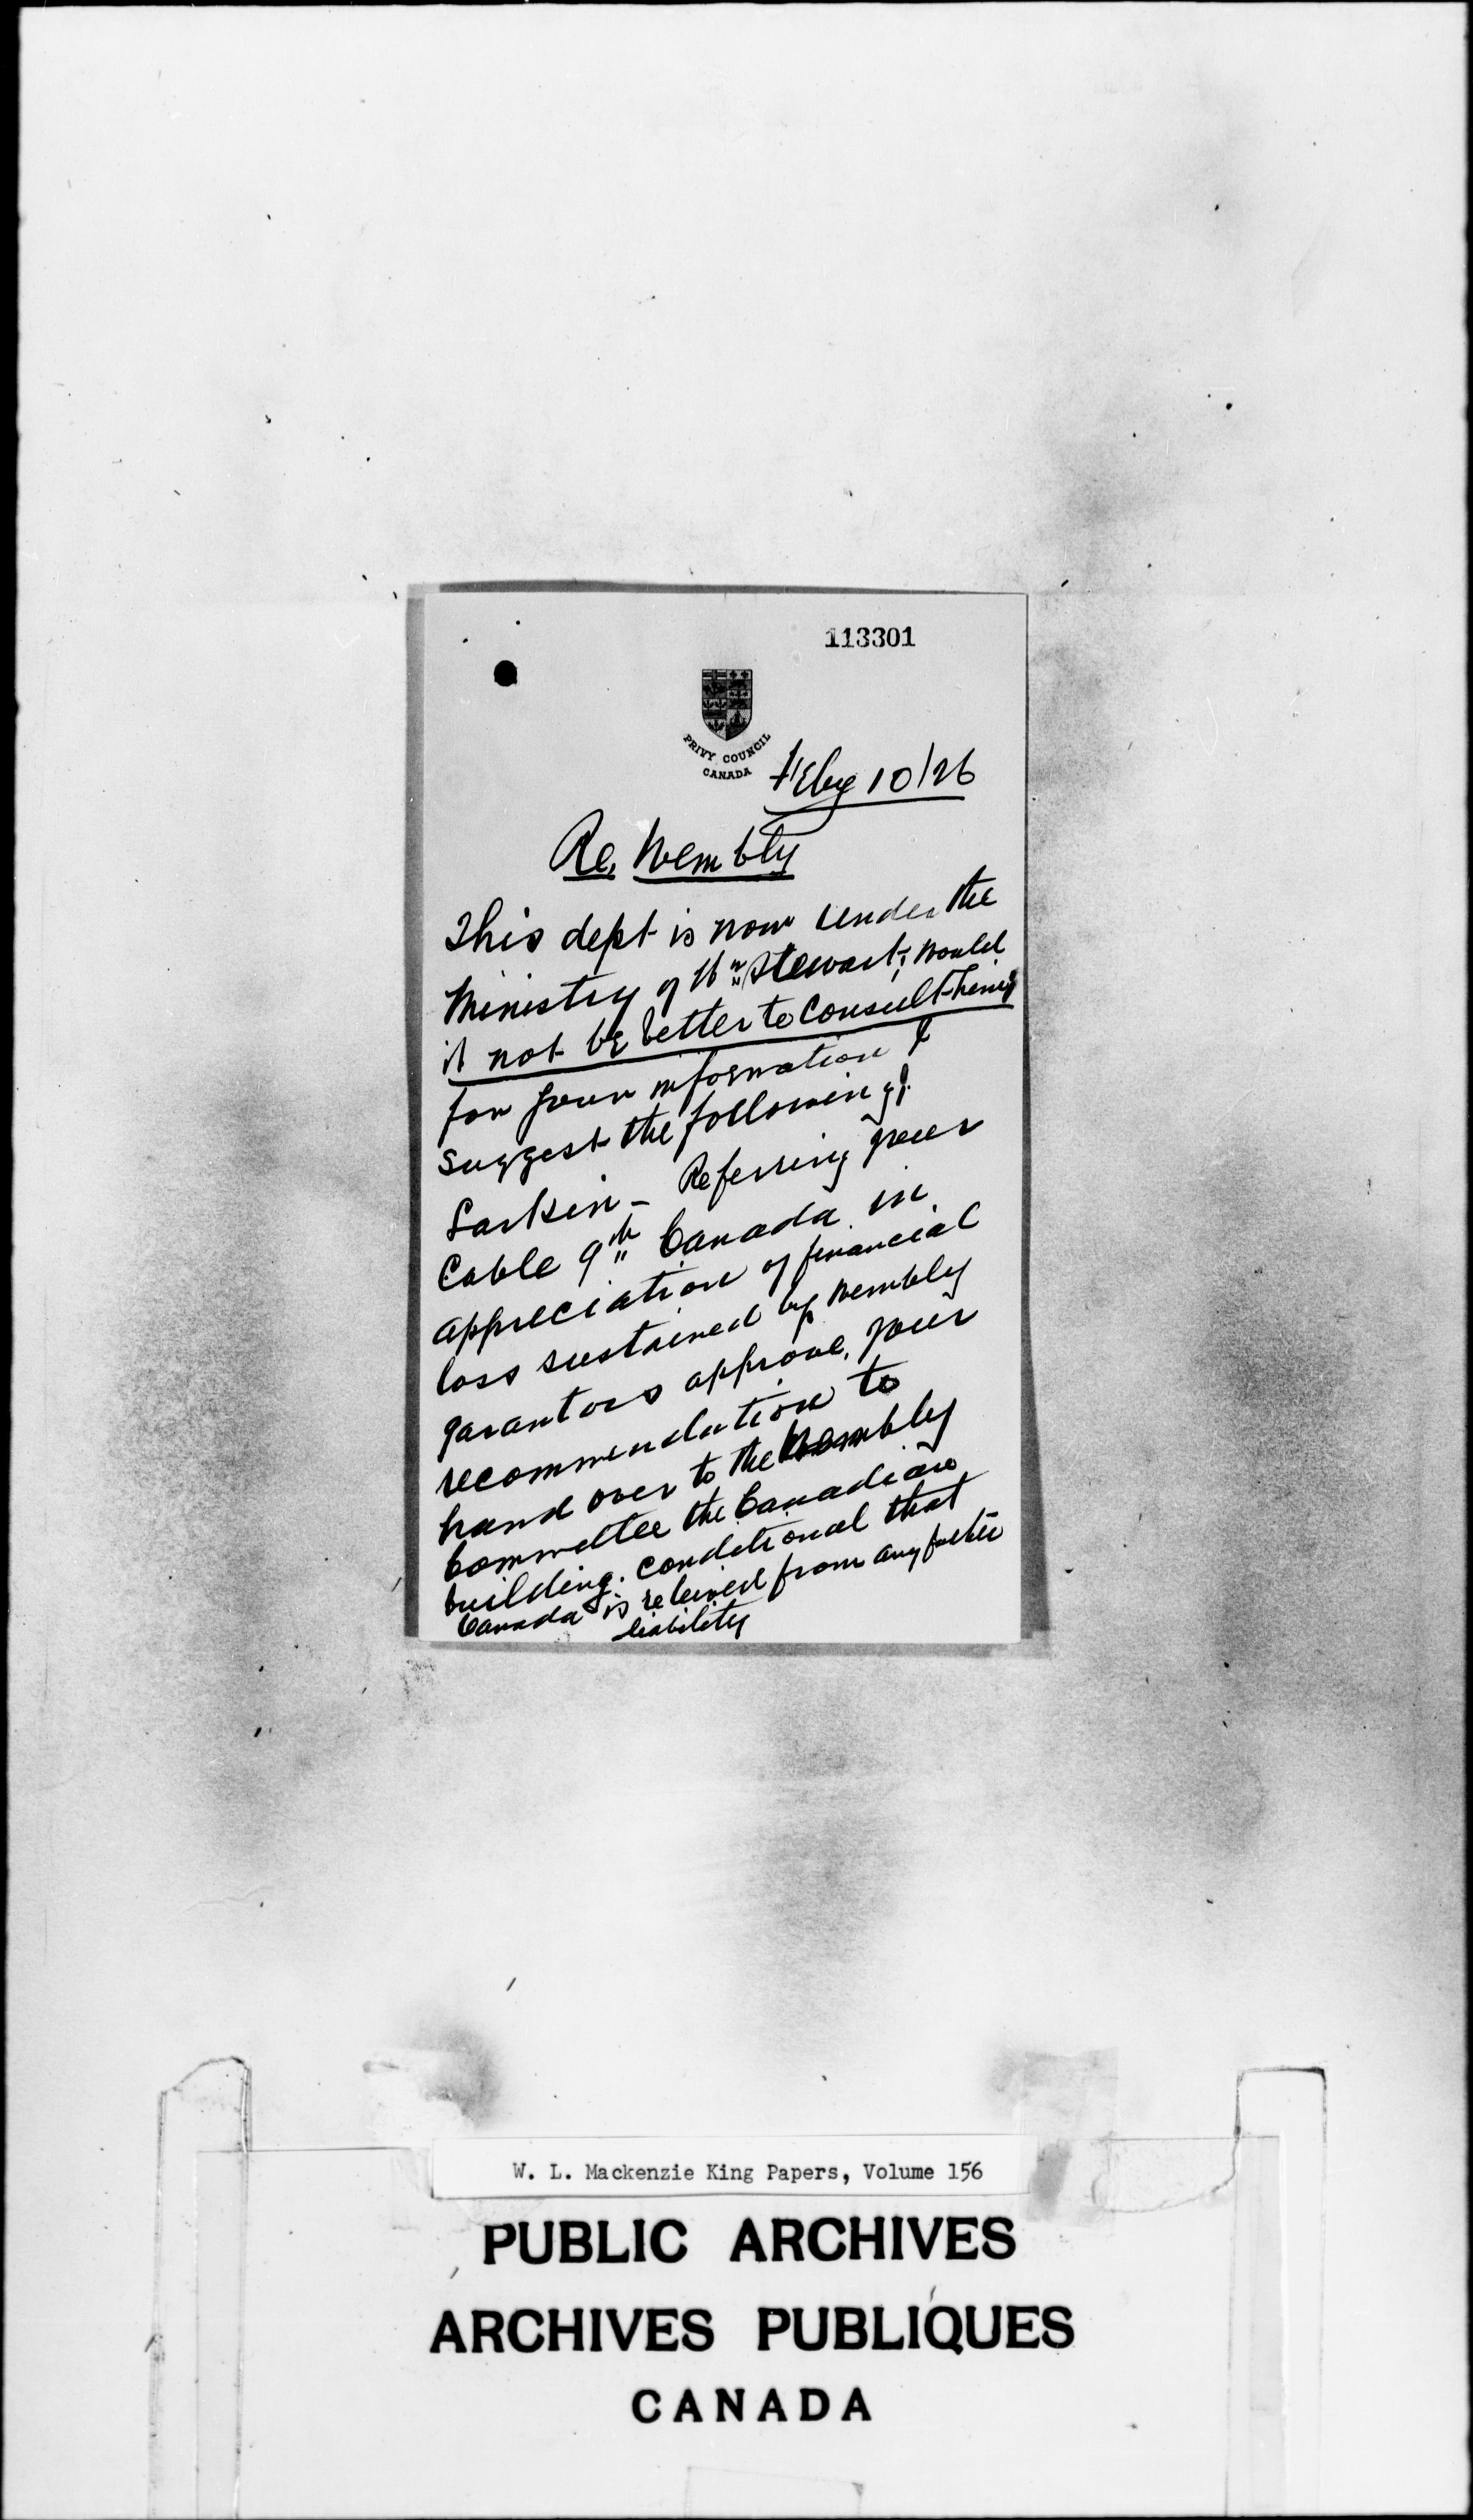 113301
PRIVY COUNCIL
CANADA
Feby 10/26
Re. Wembly
This dept is now under the
Ministry of Hn Stewart; would
it not be better to consult him?
for your information I
suggest the following:
Larkin - Referring your
Cable 9th Canada in
appreciation of financial
loss sustained by Wembly
garantors approve, your
recommendation to
hand over to the Wembly
Committee the Canadian
building. conditional that
Canada is releived from any further
liability
W. L. Mackenzie King Papers, Volume 156
PUBLIC ARCHIVES
ARCHIVES PUBLIQUES
CANADA